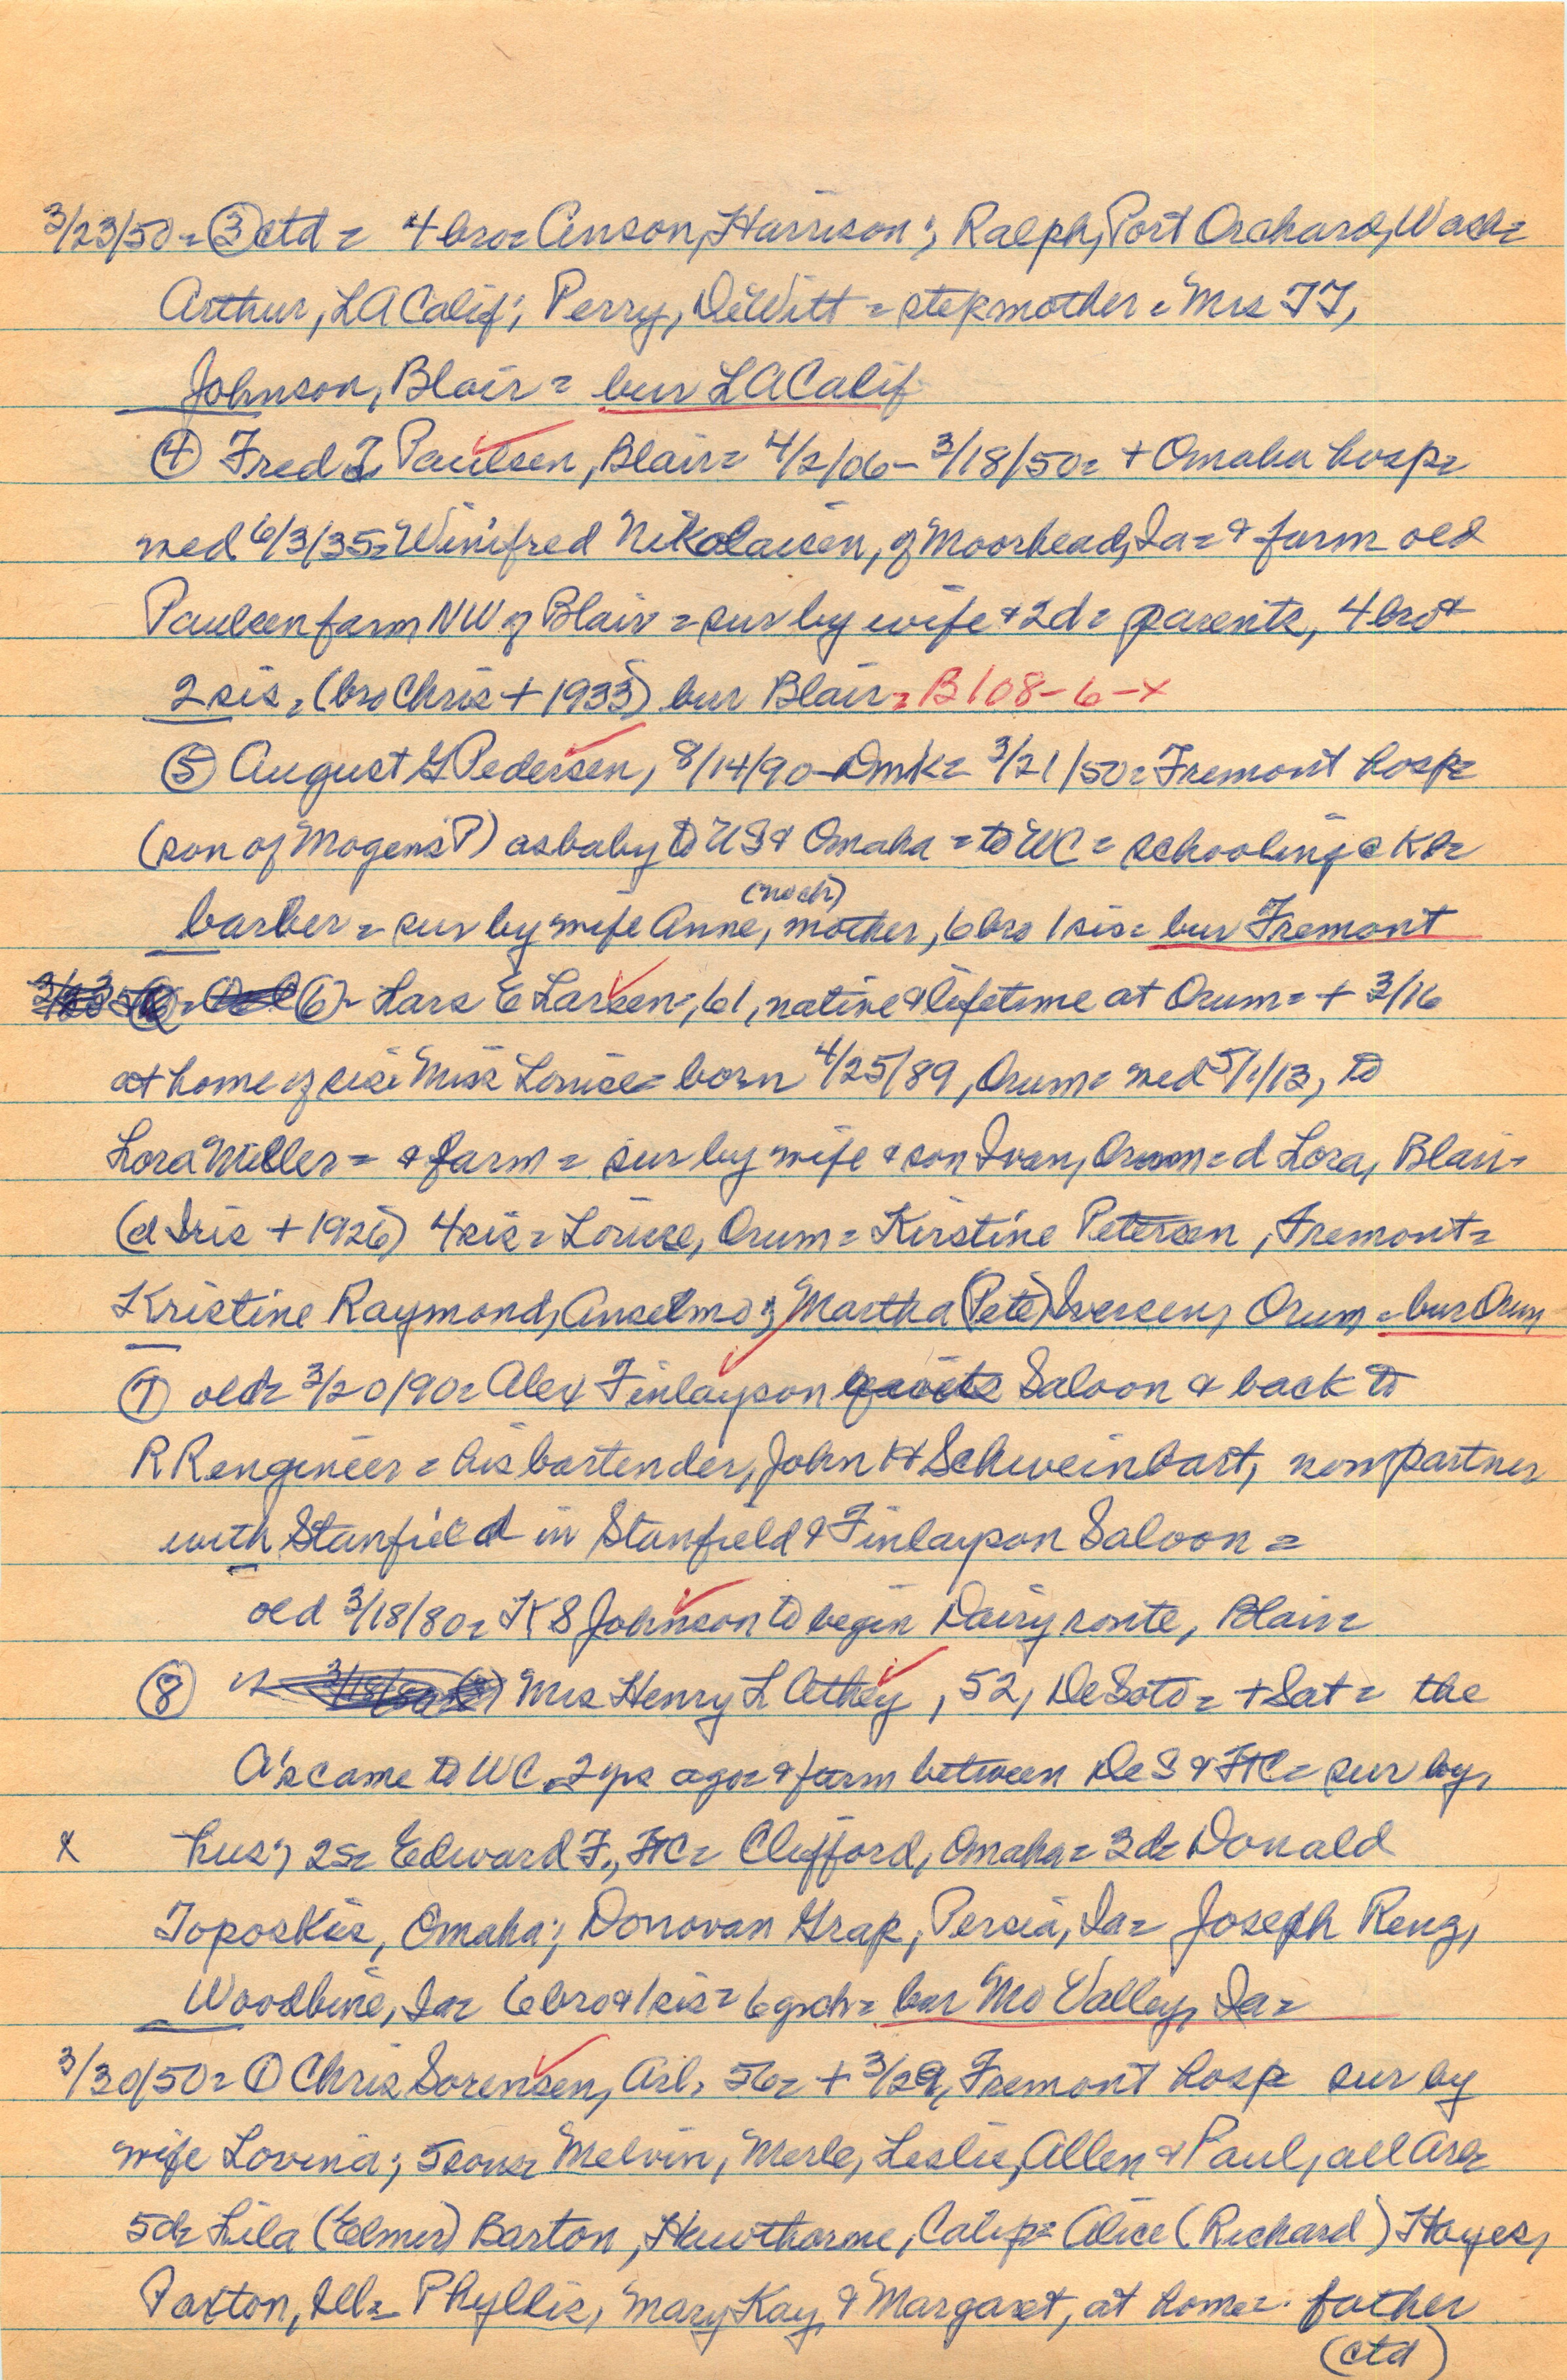 3/23/50 = ③ ctd = 4 bro = Anson, Harrison; Ralph, Port Orchard, Wash =
Arthur, LA Calif; Perry, DeWitt = stepmother = Mrs TT,
Johnson, Blair = bur LA Calif
④ Fred I, Paulsen, Blair = 4/2/06 - 3/18/50 = + Omaha hosp =
wed 6/3/35 = Winifred Nikolaisen, of Moorhead, Ia = & farm old
Paulsen farm NW of Blair = sur by wife & 2d = parents, 4 bro &
2 sis, (bro Chris + 1933) bur Blair = B108-6-x
⑤ August G Pedersen, 8/14/90 - Dmk = 3/21/50 = Fremont hosp =
(son of Mogens P) as baby to US & Omaha = to WC = schooling @ KB =
(no ch)
barber = sur by wife Anne, mother, 6 bro 1 sis = bur Fremont
(6) = Lars E Larsen, 61, native & lifetime at Orum = + 3/16
at home of sis Miss Louise = born 4/25/89, Orum = wed 5/1/13, to
Lora Miller = & farm = sur by wife & son Ivan, Orum = d Lora, Blair =
(d Iris + 1926) 4 sis = Louise, Orum = Kirstine Petersen, Fremont =
Kristine Raymond, Anselmo; Martha (Pete) Iversen, Orum = bur Orum
⑦ old = 3/20/90 = Alex Finlayson quits Saloon & back to
RR engineer = his bartender, John H Schweinbart, now partner
with Stanfield in Stanfield & Finlayson Saloon =
old 3/18/80 = K S Johnson to begin Dairy route, Blair =
⑧ Mrs Henry L Athey, 52, DeSoto = + Sat = the
A's came to WC 2 yrs ago = & farm between DeS & FtC = sur by,
x hus; 2s = Edward F., FtC = Clifford, Omaha = 3d = Donald
Toposkis, Omaha; Donovan Grap, Persia, Ia = Joseph Reng,
Woodbine, Ia = 6 bro & 1 sis = 6 gsch = bur Mo Valley, Ia =
3/30/50 = ① Chris Sorensen, Arl, 56 = + 3/29, Fremont hosp sur by
wife Lovina; 5 sons = Melvin, Merle, Leslie, Allen & Paul, all Arl =
5d = Lila (Elmer) Barton, Hawthorne, Calif = Alice (Richard) Hayes,
Paxton, Ill = Phyllis, Mary Kay, & Margaret, at home = father
(ctd)